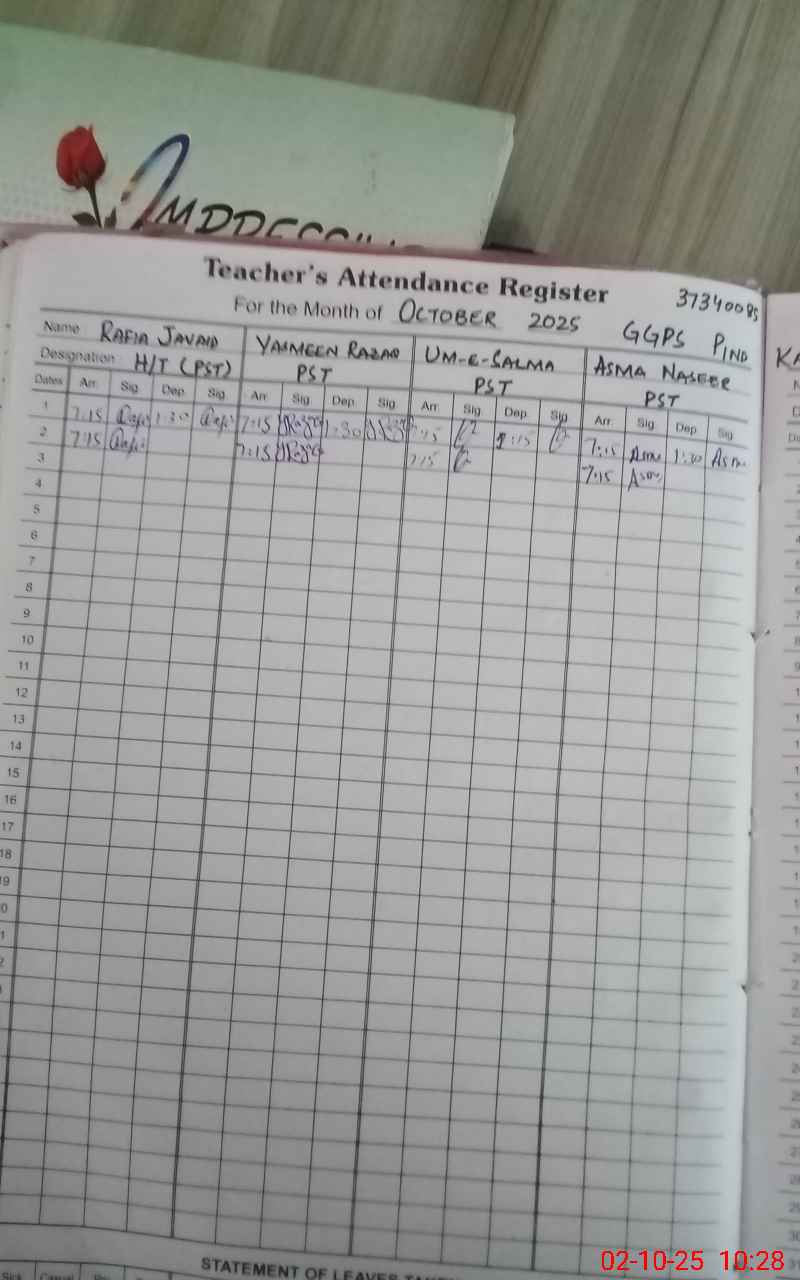 Teacher's Attendance Register
37340085
For the Month of OCTOBER 2025 GGPS PIND
Name RAFIA JAVAID YASMEEN RAZAQ UM-E-SALMA ASMA NASEER
Designation H/T (PST) PST PST PST
Dates Arr. Sig. Dep. Sig. Arr. Sig. Dep. Sig. Arr. Sig. Dep. Sig. Arr. Sig. Dep. Sig.
1 7:15 1:30 7:15 1:30 1:15 7:15 Asma 1:30 Asma
2 7:15 7:15 7:15 7:15 Asma
3
4
5
6
7
8
9
10
11
12
13
14
15
16
17
18
19
STATEMENT OF LEAVES
Sick Casual
02-10-25 10:28